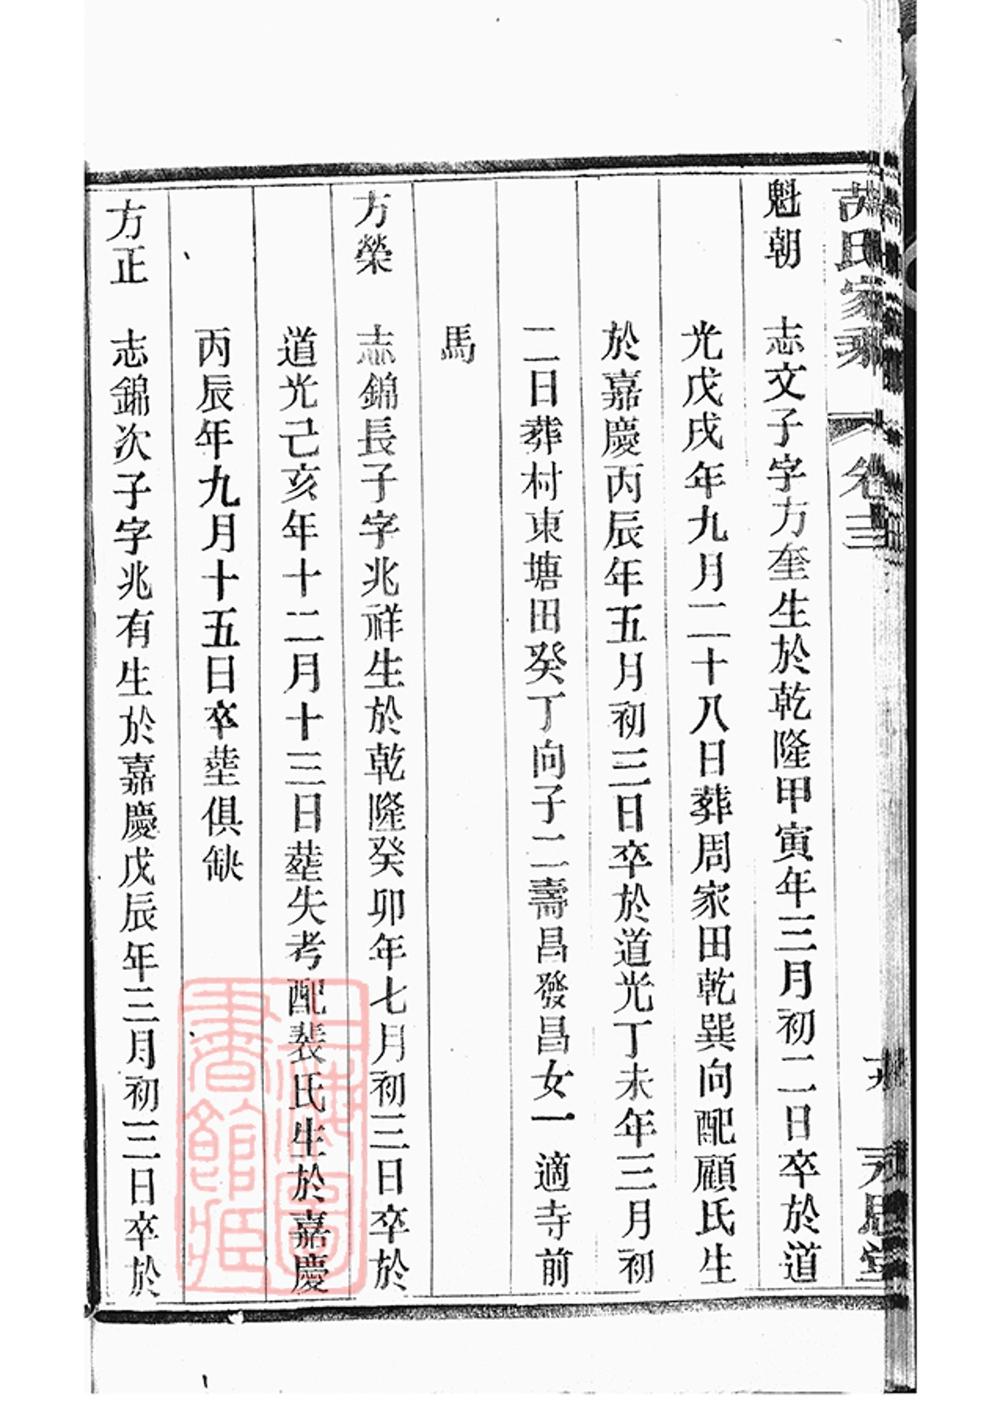 氏家乘
卷三
思堂
魁朝
志文子字方奎生於乾隆甲寅年三月初二日卒於道
光戊戌年九月二十八日葬周家田乾巽向配顧氏生
於嘉慶丙辰年五月初三日卒於道光丁未年三月初
二日葬村東塘田癸丁向子二壽昌發昌女一適寺前
馬
方榮
志錦長子字兆祥生於乾隆癸卯年七月初三日卒於
道光己亥年十二月十三日塟失考配裴氏生於嘉慶
丙辰年九月十五日卒塟俱缺
方正
志錦次子字兆有生於嘉慶戊辰年三月初三日卒於
上海圖
書館藏